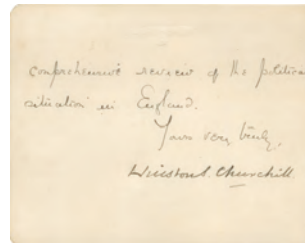 comprehensive review of the political
situation in England.
Yours very truly,
Winston S. Churchill